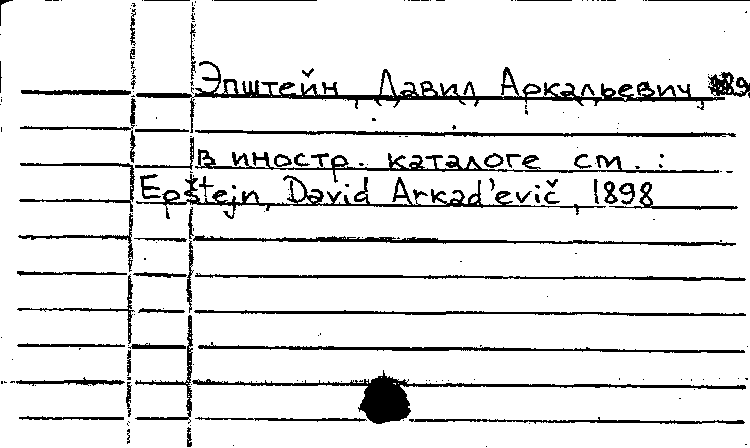 Эпштейн, Давид Аркадьевич,
в иностр. каталоге см.:
Epštejn, David Arkad'evič, 1898